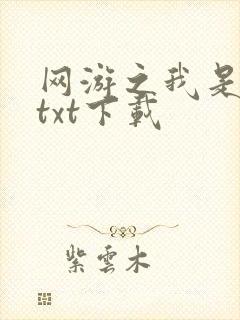 网游之我是
txt下载
紫云木